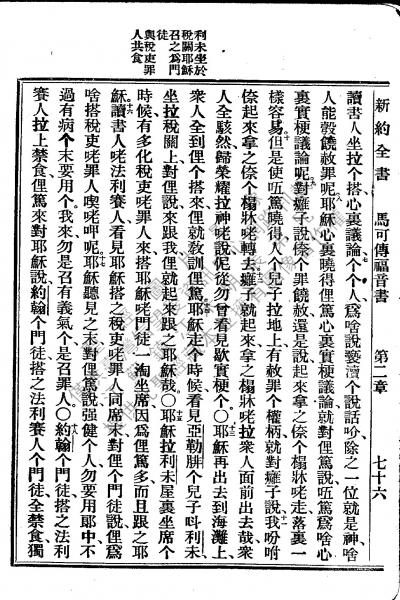 新約全書 馬可傳福音書 第二章 七十六
利未坐於
稅關耶穌
召之爲門
徒
與稅吏罪
人共食
讀書人坐拉个搭、心裏議論、个个人爲啥說褻瀆个說話吤、除之一位就是神、啥
人能彀饒赦罪呢、耶穌心裏曉得俚篤心裏實梗議論、就對俚篤說、㑚篤爲啥心
裏實梗議論呢、對癱子說、倷个罪饒赦、還是說、起來拿之倷个榻牀咾走、落裏一
樣容易、但是使㑚篤曉得人个兒子拉地上有赦罪个權柄、就對癱子說、我吩咐
倷起來拿之倷个榻牀咾轉去、癱子就起來拿之榻牀咾拉衆人面前出去哉、衆
人全駭然、歸榮耀拉神咾說、伲從勿曾看見歇實梗个、○耶穌再出去到海灘上、
衆人全到俚个搭來、俚就敎訓俚篤、耶穌走个時候、看見亞勒腓个兒子叫利未
坐拉稅關上、對俚說、來跟我、俚就起來跟之耶穌哉、○耶穌拉利未屋裏坐席个
時候、有多化稅吏咾罪人來搭耶穌咾門徒一淘坐席、因爲俚篤多而且跟之耶
穌、讀書人咾法利賽人看見耶穌搭之稅吏咾罪人同席、末對俚个門徒說、俚爲
啥搭稅吏咾罪人喫咾呷呢、耶穌聽見之末、對俚篤說、強健个人勿要用郎中、不
過有病个末要用个、我來勿是召有義氣个、是召罪人、○約翰个門徒搭之法利
賽人拉上禁食、俚篤來對耶穌說、約翰个門徒搭之法利賽人个門徒全禁食、獨